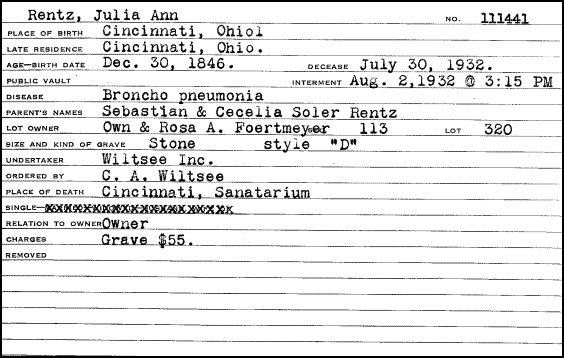 Rentz, Julia Ann NO. 111441
PLACE OF BIRTH Cincinnati, Ohiol
LATE RESIDENCE Cincinnati, Ohio.
AGE—BIRTH DATE Dec. 30, 1846. DECEASE July 30, 1932.
PUBLIC VAULT INTERMENT Aug. 2,1932 @ 3:15 PM
DISEASE Broncho pneumonia
PARENT'S NAMES Sebastian & Cecelia Soler Rentz
LOT OWNER Own & Rosa A. Foertmeyer 113 LOT 320
SIZE AND KIND OF GRAVE Stone style "D"
UNDERTAKER Wiltsee Inc.
ORDERED BY C. A. Wiltsee
PLACE OF DEATH Cincinnati, Sanatarium
SINGLE—
RELATION TO OWNER Owner
CHARGES Grave $55.
REMOVED